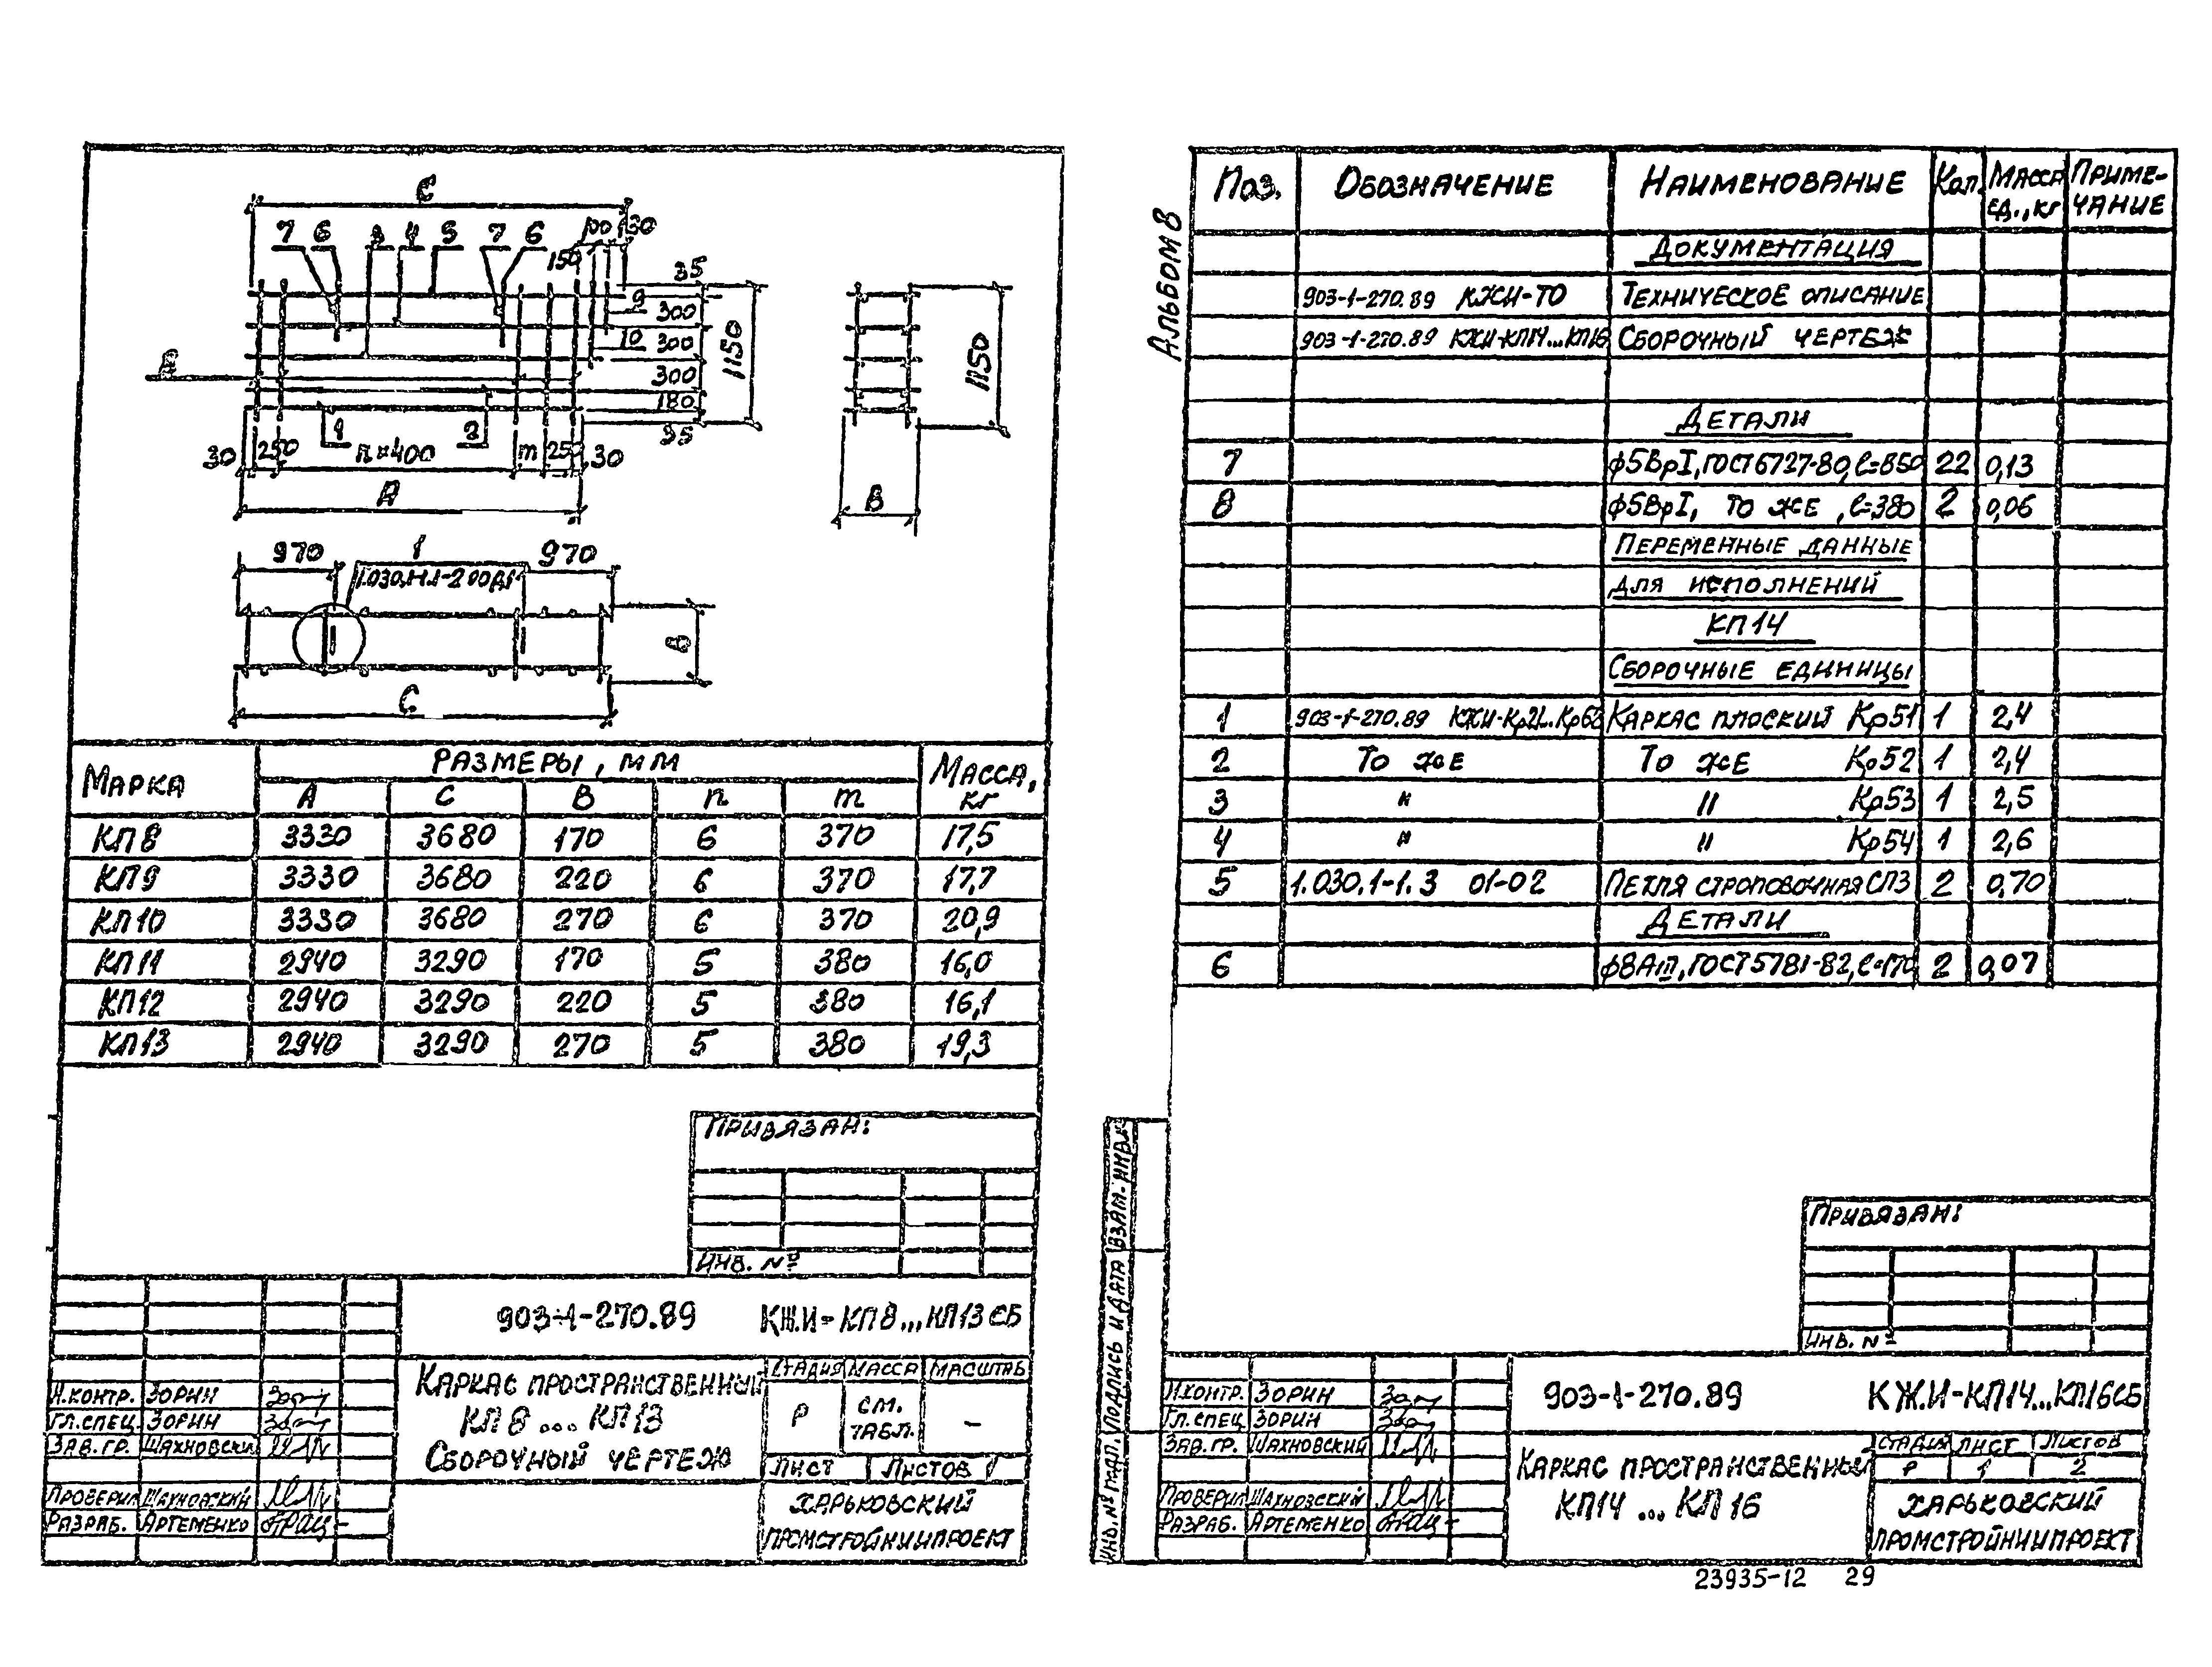 С
7 6 3 4 5 7 6
100 130
150
35
9
300
10 300
300
180
35
1150
8
1 2
30 250 n×400 m 250 30
А
1150
В
970 1 970
В
С
МАРКА РАЗМЕРЫ, ММ МАССА, КГ
А С В n m
КП8 3330 3680 170 6 370 17,5
КП9 3330 3680 220 6 370 17,7
КП10 3330 3680 270 6 370 20,9
КП11 2940 3290 170 5 380 16,0
КП12 2940 3290 220 5 380 16,1
КП13 2940 3290 270 5 380 19,3
ПРИВЯЗАН:
ИНВ. №
903-1-270.89 КЖ.И-КП8...КП13СБ
КАРКАС ПРОСТРАНСТВЕННЫЙ
КП8 ... КП13
СБОРОЧНЫЙ ЧЕРТЕЖ
СТАДИЯ МАССА МАСШТАБ
Р СМ. ТАБЛ. –
ЛИСТ ЛИСТОВ 1
ХАРЬКОВСКИЙ
ПРОМСТРОЙНИИПРОЕКТ
Н.КОНТР. ЗОРИН
ГЛ.СПЕЦ ЗОРИН
ЗАВ.ГР. ШАХНОВСКИЙ
ПРОВЕРИЛ ШАХНОВСКИЙ
РАЗРАБ. АРТЕМЕНКО
АЛЬБОМ 8
ПОЗ. ОБОЗНАЧЕНИЕ НАИМЕНОВАНИЕ КОЛ. МАССА ЕД., КГ ПРИМЕ-ЧАНИЕ
ДОКУМЕНТАЦИЯ
903-1-270.89 КЖИ-ТО ТЕХНИЧЕСКОЕ ОПИСАНИЕ
903-1-270.89 КЖИ-КП14...КП16 СБОРОЧНЫЙ ЧЕРТЕЖ
ДЕТАЛИ
7 ϕ5ВрI, ГОСТ6727-80, ℓ=850 22 0,13
8 ϕ5ВрI, ТО ЖЕ, ℓ=380 2 0,06
ПЕРЕМЕННЫЕ ДАННЫЕ
ДЛЯ ИСПОЛНЕНИЙ
КП14
СБОРОЧНЫЕ ЕДИНИЦЫ
1 903-1-270.89 КАРКАС ПЛОСКИЙ Кр51 1 2,4
2 ТО ЖЕ ТО ЖЕ Кр52 1 2,4
3 " " Кр53 1 2,5
4 " " Кр54 1 2,6
5 1.030.1-1.3 01-02 ПЕТЛЯ СТРОПОВОЧНАЯ СП3 2 0,70
ДЕТАЛИ
6 ϕ8АIII, ГОСТ5781-82, ℓ=170 2 0,07
ПРИВЯЗАН:
ИНВ. №
ИНВ. № ПОДЛ. ПОДПИСЬ И ДАТА ВЗАМ. ИНВ. №
Н.КОНТР. ЗОРИН
ГЛ.СПЕЦ ЗОРИН
ЗАВ.ГР. ШАХНОВСКИЙ
ПРОВЕРИЛ ШАХНОВСКИЙ
РАЗРАБ. АРТЕМЕНКО
903-1-270.89 КЖ.И-КП14...КП16СБ
КАРКАС ПРОСТРАНСТВЕННЫЙ
КП14 ... КП16
СТАДИЯ ЛИСТ ЛИСТОВ
Р 1 2
ХАРЬКОВСКИЙ
ПРОМСТРОЙНИИПРОЕКТ
23935-12 29